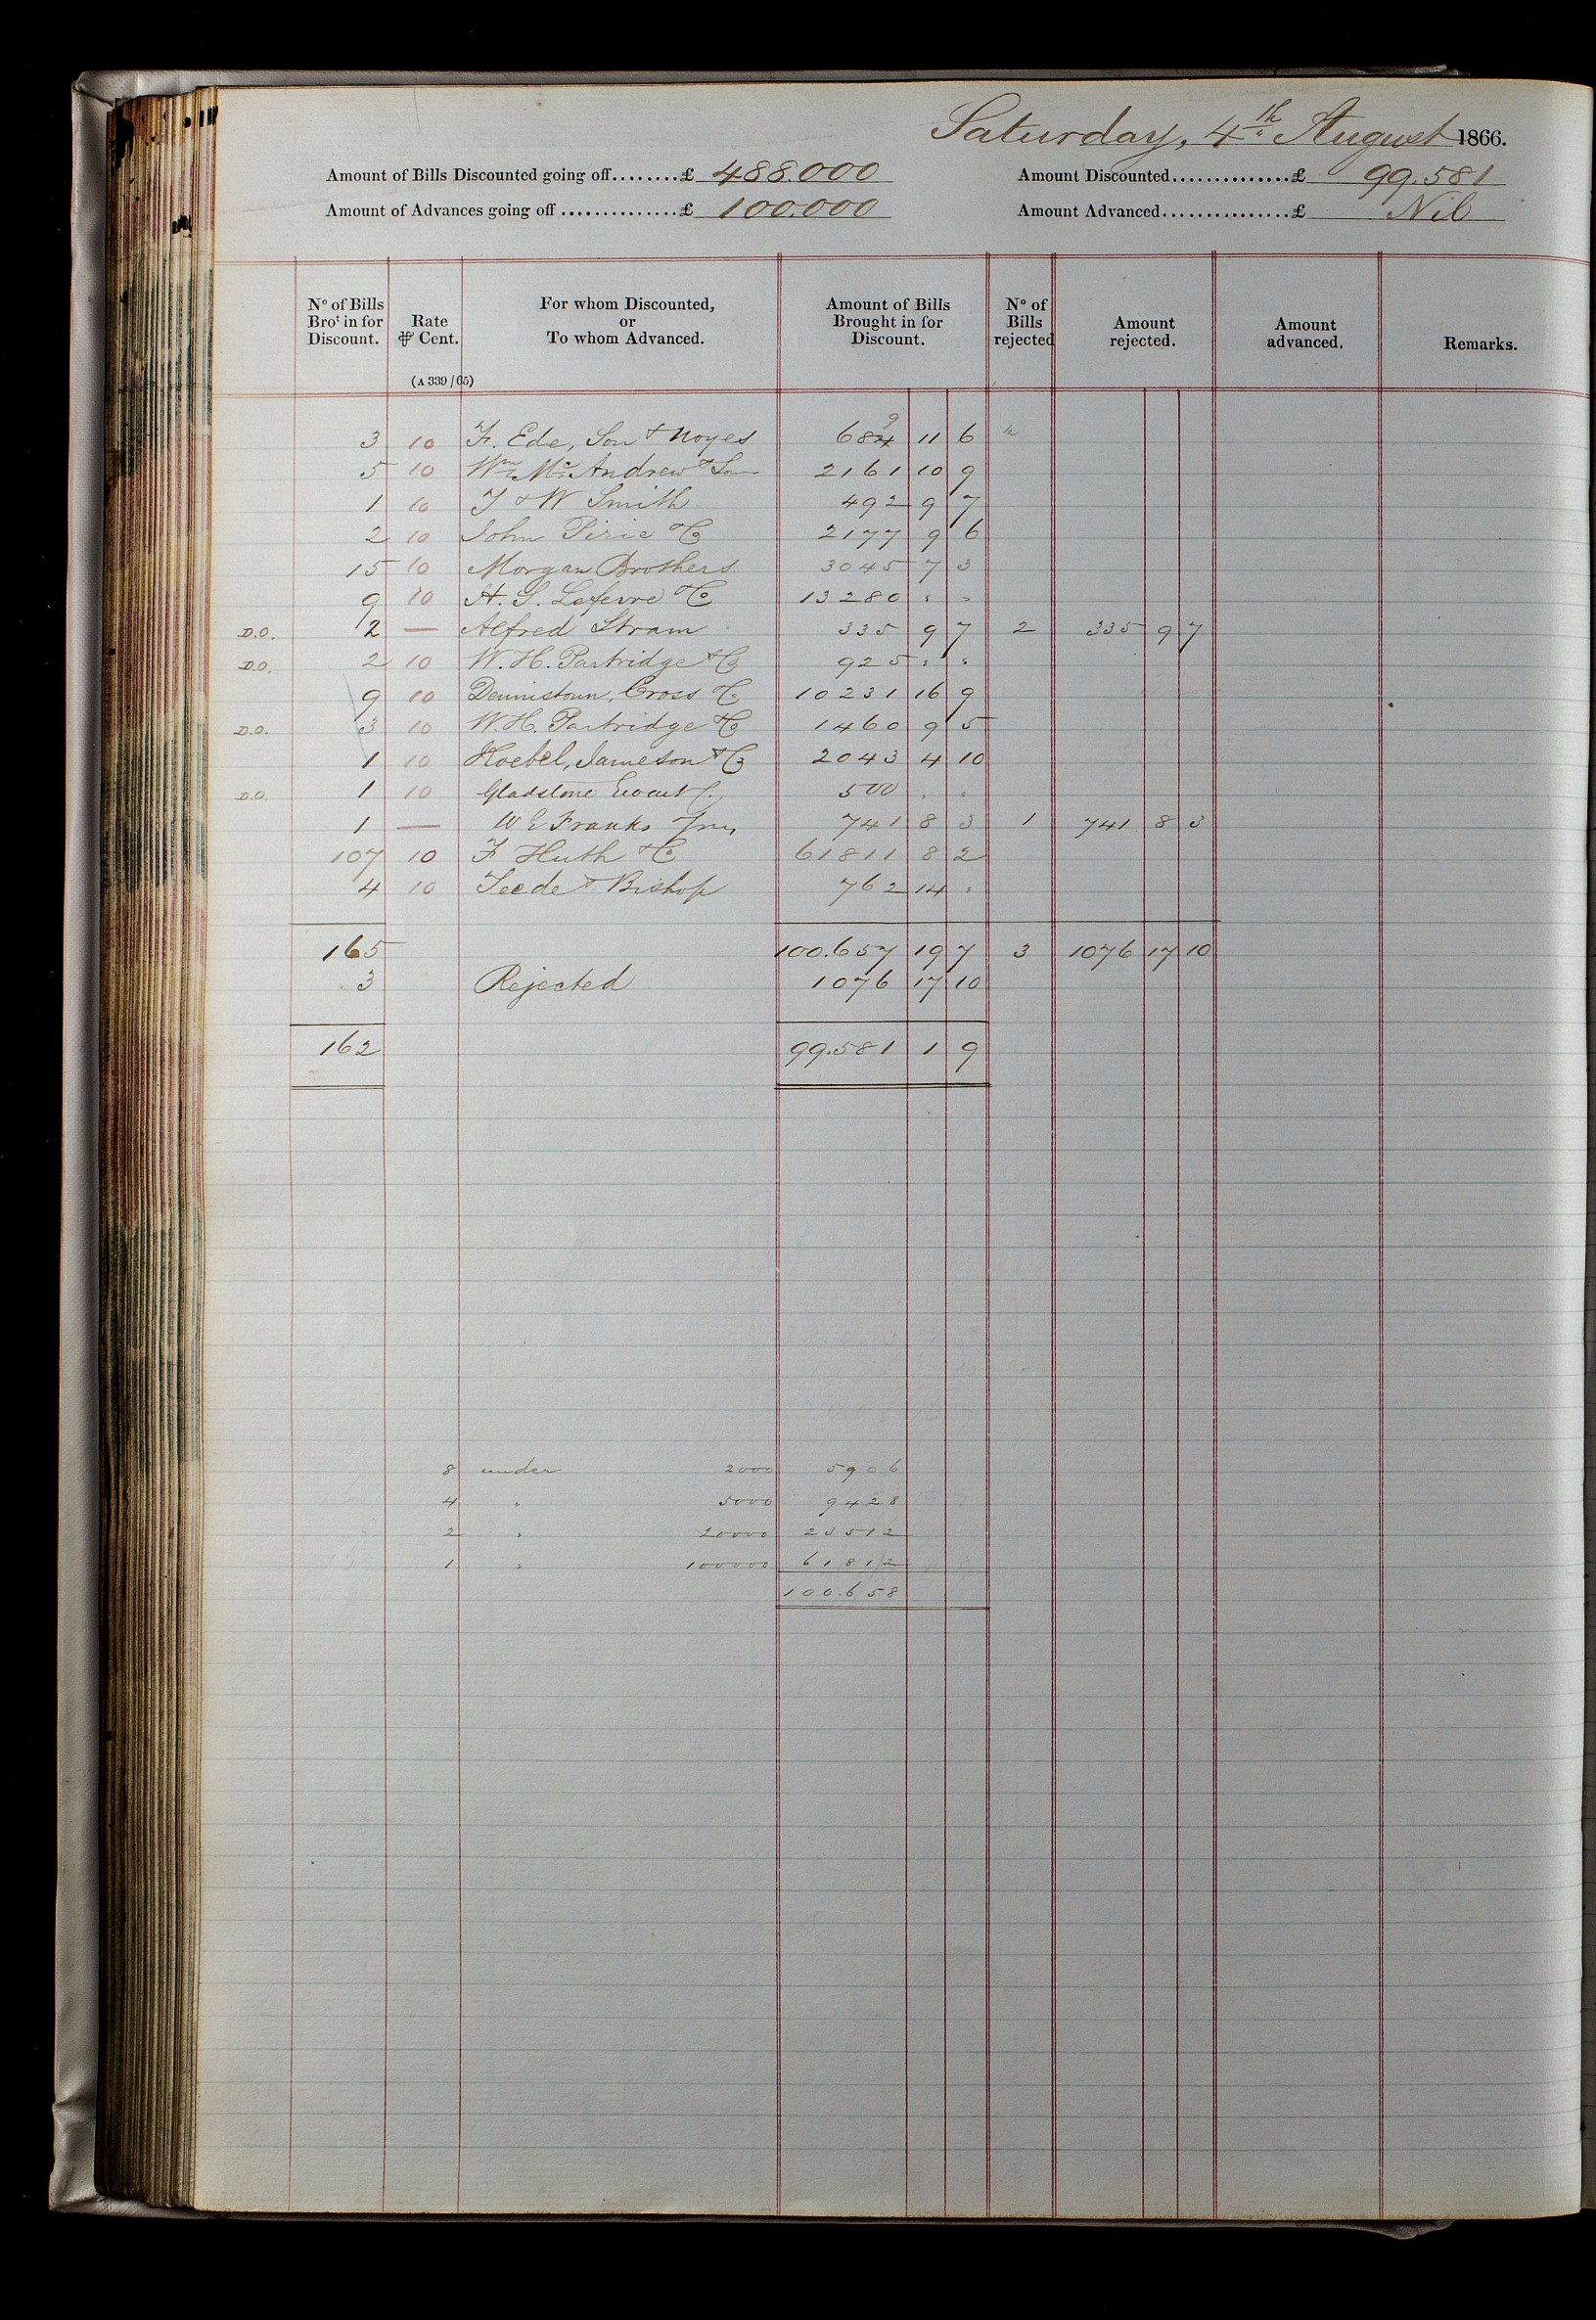 Saturday, 4th August 1866.
Amount of Bills Discounted going off........£ 488.000 Amount Discounted..............£ 99.581
Amount of Advances going off..............£ 100.000 Amount Advanced...............£ Nil
No of Bills Brot in for Discount. Rate ⅌ Cent. For whom Discounted, or To whom Advanced. Amount of Bills Brought in for Discount. No of Bills rejected Amount rejected. Amount advanced. Remarks.
(A 339/65)
9
3 10 F. Ede, Son & Noyes 684 11 6
5 10 Wm Mc Andrew & Son 2161 10 9
1 10 T & W Smith 492 9 7
2 10 John Pirie & Co 2177 9 6
15 10 Morgan Brothers 3045 7 3
9 10 H. S. Lefevre & Co 13280 " "
D.O. 2 — Alfred Stram 335 9 7 2 335 9 7
D.O. 2 10 W. H. Partridge & Co 925 " "
9 10 Dennistoun, Cross & Co 10231 16 9
D.O. 3 10 W. H. Partridge & Co 1460 9 5
1 10 Hoebel, Jameson & Co 2043 4 10
D.O. 1 10 Gladstone 500 " "
1 — W E Franks Jnr 741 8 3 1 741 8 3
107 10 F Huth & Co 61811 8 2
4 10 Teede & Bishop 762 14 "
165 100.657 19 7 3 1076 17 10
3 Rejected 1076 17 10
162 99.581 1 9
8 under 2000 5906
4 " 5000 9428
2 " 20000 23512
1 " 100000 61812
100.658